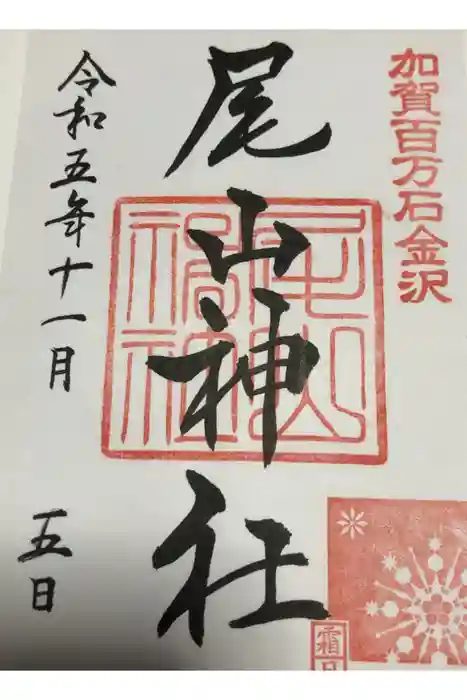 加賀百万石金沢
尾山神社
令和五年十一月
五日
尾山
神社
霜月